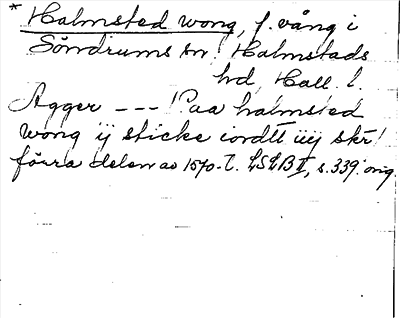 * Halmsted wong, f. vång i
Söndrums sn! Halmstads
hd, Hall. l.
Agger --- ! Paa halmsted
wong ij sticke iordtt iiij skr!
förra delen av 1570-t. LSLB II, s. 339: orig.